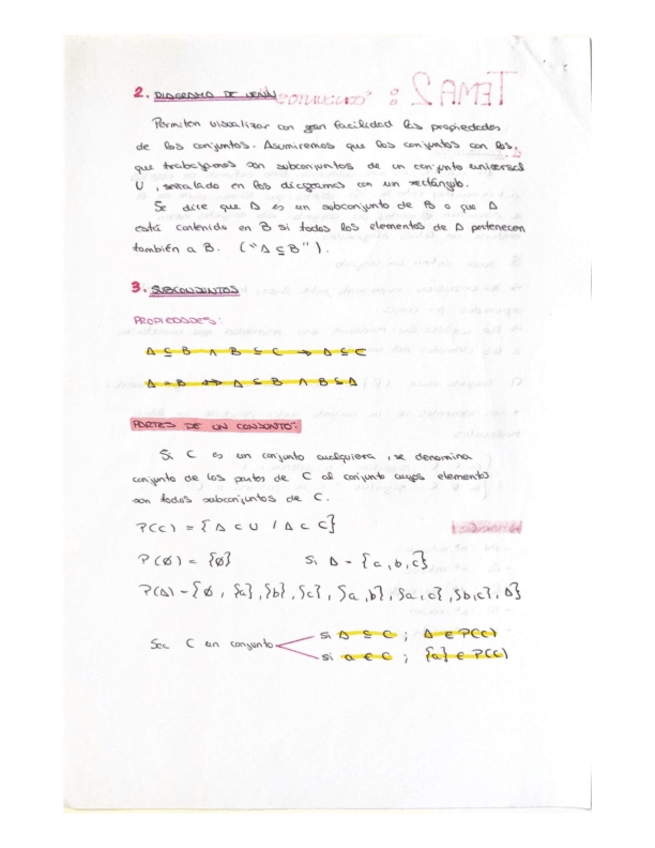 2. DIAGRAMA DE VENN
Permiten visualizar con gran facilidad las propiedades
de los conjuntos. Asumiremos que los conjuntos con los
que trabajamos son subconjuntos de un conjunto universal
U, señalado en los diagramas con un rectángulo.
Se dice que A es un subconjunto de B o que A
está contenido en B si todos los elementos de A pertenecen
también a B. ("A ⊆ B").
3. SUBCONJUNTOS
PROPIEDADES:
A ⊆ B ∧ B ⊆ C → A ⊆ C
A = B ⇔ A ⊆ B ∧ B ⊆ A
PARTES DE UN CONJUNTO:
Si C es un conjunto cualquiera, se denomina
conjunto de las partes de C al conjunto cuyos elementos
son todos subconjuntos de C.
P(C) = {A ⊂ U / A ⊂ C}
P(Ø) = {Ø} Si A = {a, b, c}
P(A) = {Ø, {a}, {b}, {c}, {a, b}, {a, c}, {b, c}, A}
Si A ⊆ C ; A ∈ P(C)
Sea C un conjunto
Si a ∈ C ; {a} ∈ P(C)